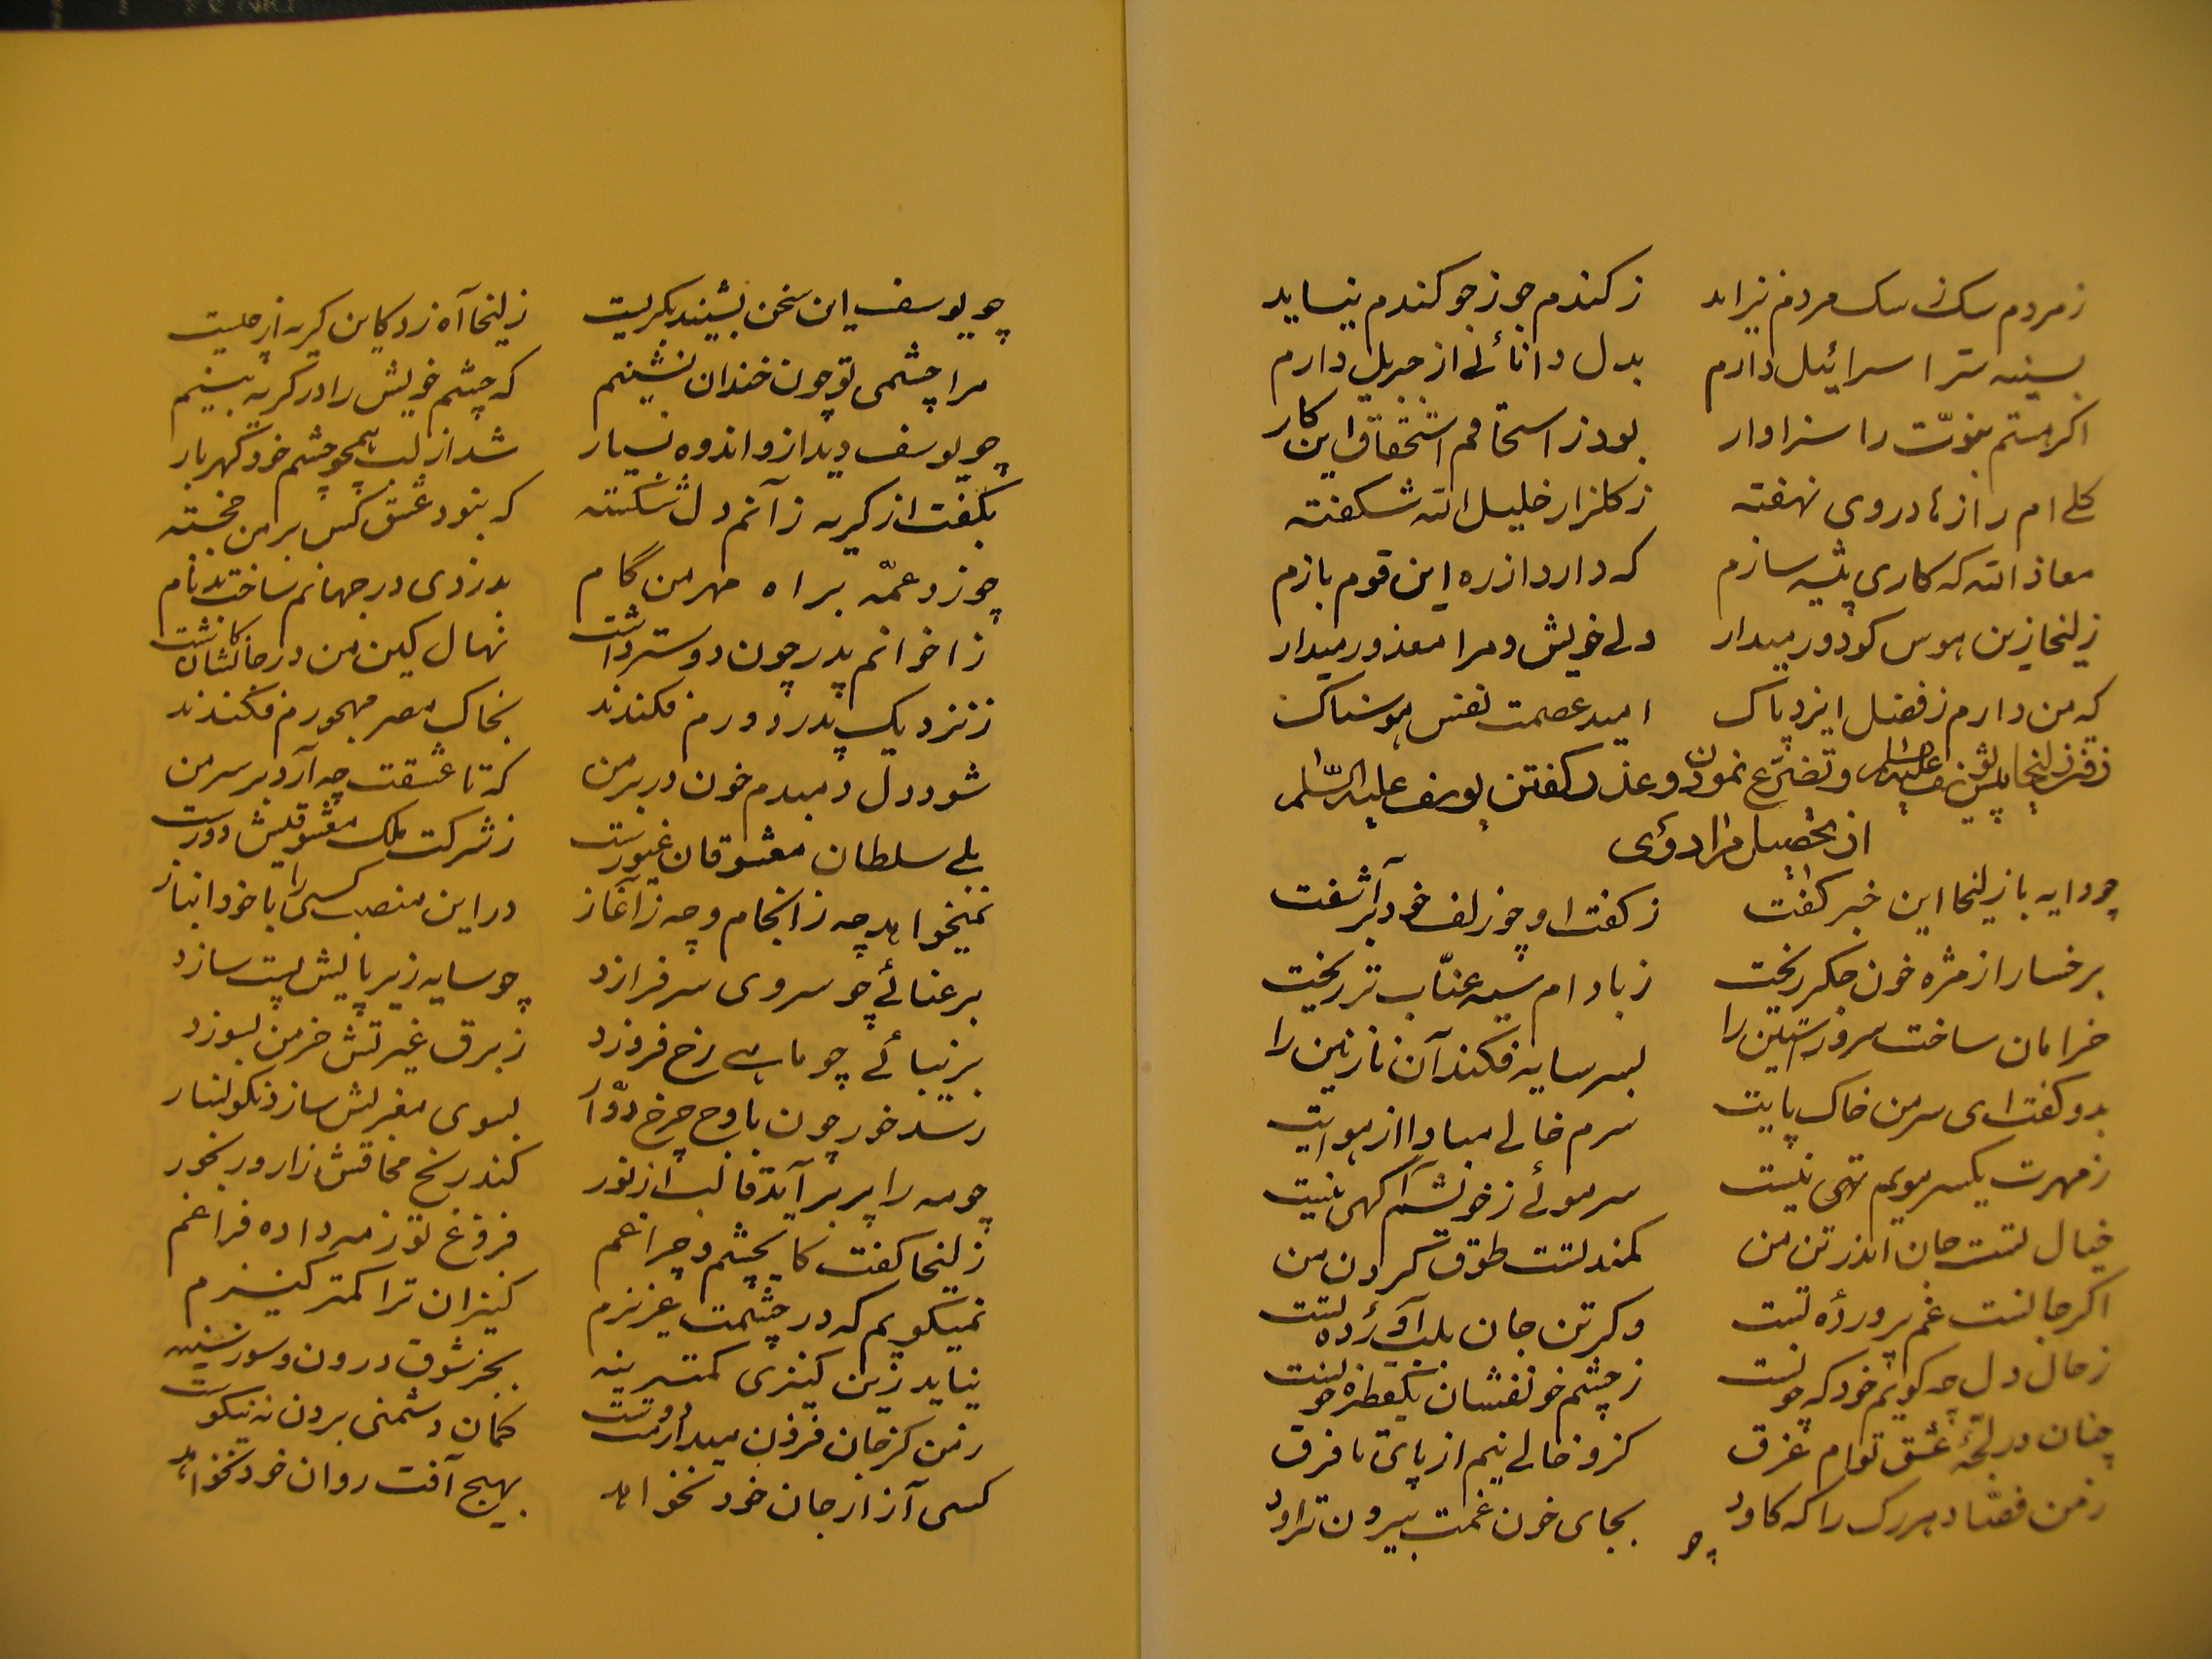 زمردم سک ز سک مردم نزاید ز کندم جو ز جو کندم نیاید
بسینه سرّ اسرائیل دارم بدل دانائی از جبریل دارم
اکر هستم نبوّت را سزاوار بود ز اسحاقم استحقاق این کار
کلی ام رازها در وی نهفته ز کلزار خلیل الله شکفته
معاذ الله که کاری پیشه سازم که دارد از ره این قوم بازم
زلیخا زین هوس کو دور میدار دلی خویش و مرا معذور میدار
که من دارم ز فضل ایزد پاک امید عصمت نفس هوسناک
رفتن زلیخا پیش یوسف علیه السلام و تضرّع نمودن و عذر کفتن یوسف علیه السّلام
از تحصیل مراد وی
چو دایه با زلیخا این خبر کفت ز کفت او چو زلف خود برآشفت
برخسار از مژه خون جکر ریخت ز بادام سیه عنّاب تر ریخت
خرامان ساخت سرو راستین را بسر سایه فکند آن نازنین را
بدو کفت ای سر من خاک پایت سرم خالی مبادا از هوایت
ز مهرت یکسر مویم تهی نیست سر موئی ز خویشم آکهی نیست
خیال تست جان اندر تن من کمند تست طوق کردن من
اکر جانست غم پرورده تست وکر تن جان بلب آورده تست
ز حال دل چه کویم خود که چونست ز چشم خونفشان یکقطره خونست
چنان در لجّهٔ عشق توام غرق کزو خالی نیم از پای تا فرق
ز من فصّاد هر رک را که کاود بجای خون غمت بیرون تراود
چو
چو یوسف این سخن بشنید بکریست زلیخا آه زد کاین کریه از چیست
مرا چشمی تو چون خندان نشینم که چشم خویش را در کریه بینم
چو یوسف دید ازو اندوه بسیار شد از لب همچو چشم خود کهربار
بکفت از کریه زآنم دل شکسته که نبود عشق کس بر من خجسته
چو زد عمّه براه مهر من گام بدزدی در جهانم ساخت بدنام
ز اخوانم پدر چون دوستر داشت نهال کین من در جانشان کاشت
ز نزدیک پدر دورم فکندند بخاک مصر مهجورم فکندند
شود دل دمبدم خون در بر من که تا عشقت چه آرد بر سر من
بلی سلطان معشوقان غیورست ز شرکت ملک معشوقیش دورست
نمیخواهد چه ز انجام و چه ز آغاز در این منصب کسی را با خود انباز
برعنائی چو سروی سر فرازد چو سایه زیر پایش پست سازد
بزیبائی چو ماهی رخ فروزد ز برق غیرتش خرمن بسوزد
رسد خور چون باوج چرخ دوّار بسوی مغربش سازد نکونسار
چو مه را پر برآید قالب از نور کند رنج محاقش زار و رنجور
زلیخا کفت کای چشم و چراغم فروغ تو ز مه داده فراغم
نمیکویم که در چشمت عزیزم کنیزان ترا کمتر کنیزم
نیاید زین کنیزی کمترینه بجز شوق درون و سوز سینه
ز من کز جان فزون میدارمت دوست کمان دشمنی بردن نه نیکوست
کسی آزار جان خود نخواهد بهیچ آفت روان خود نخواهد